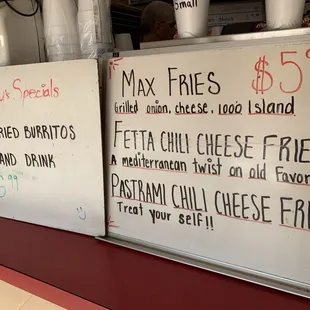 Small
Specials
BURRITOS
AND DRINK
99
MAX FRIES
$5
Grilled onion, cheese, 1000 Island
FETTA CHILI CHEESE FRIE
A mediterranean twist on old favor
PASTRAMI CHILI CHEESE FRI
Treat your self!!